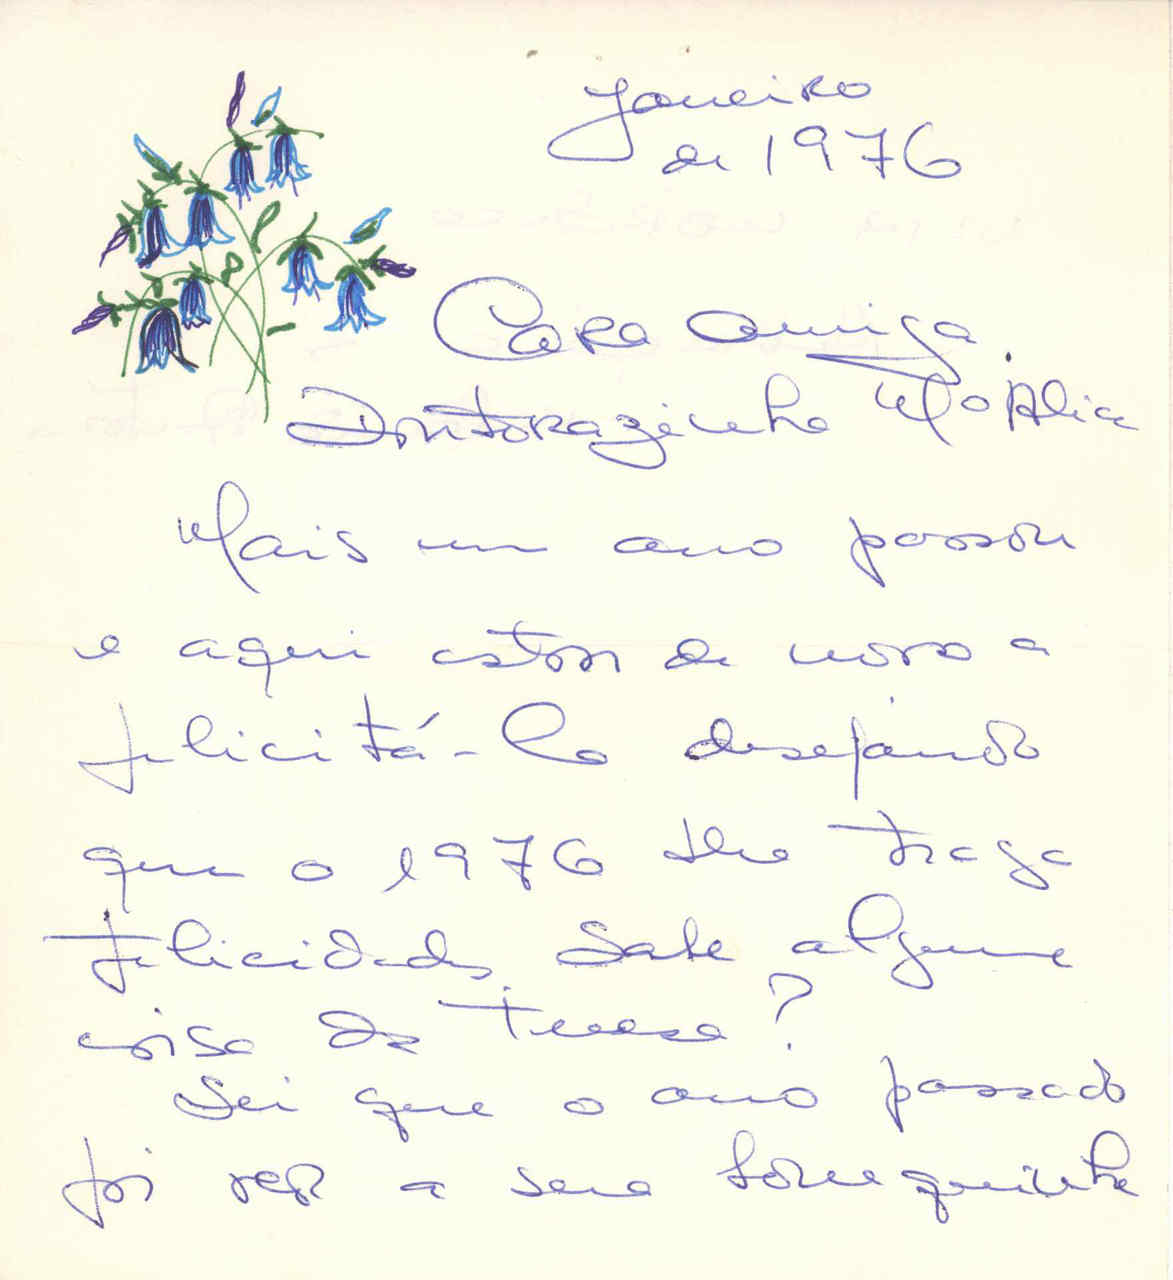 Janeiro
de 1976
Cara Amiga
Doutorazinha Mª Alice
Mais um ano passou
e aqui estou de novo a
felicitá-la desejando
que o 1976 lhe traga
felicidades Sabe alguma
coisa da Teresa?
Sei que o ano passado
foi ver a sua